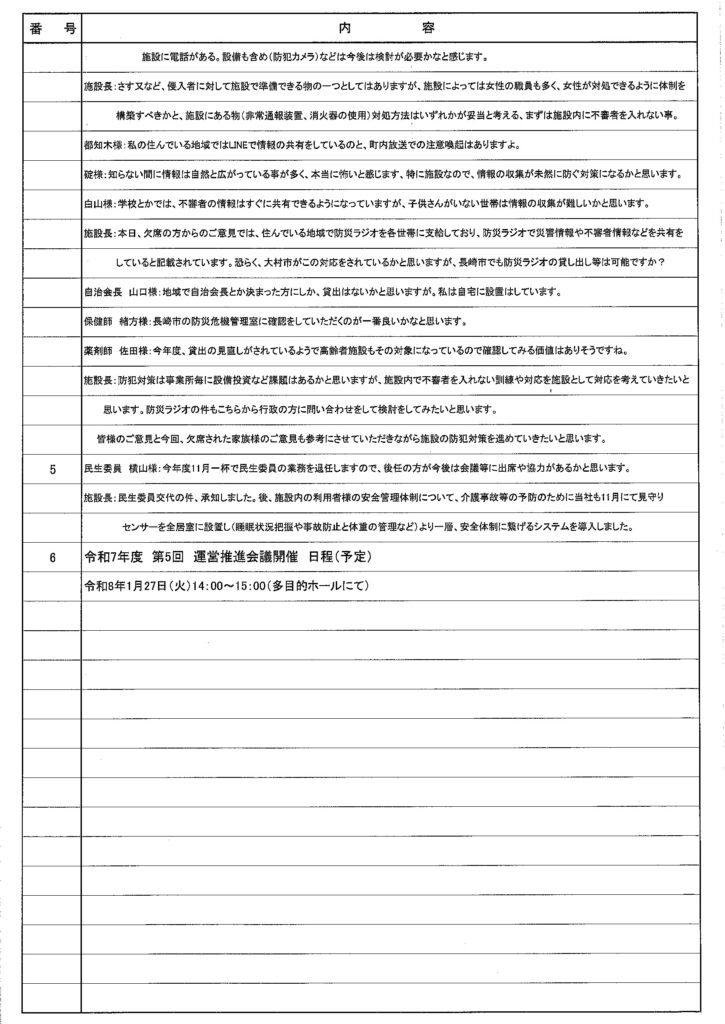 番 号 内 容
施設に電話がある。設備も含め(防犯カメラ)などは今後は検討が必要かなと感じます。
施設長:さす又など、侵入者に対して施設で準備できる物の一つとしてはありますが、施設によっては女性の職員も多く、女性が対処できるように体制を
構築すべきかと、施設にある物(非常通報装置、消火器の使用)対処方法はいずれかが妥当と考える、まずは施設内に不審者を入れない事。
都知木様:私の住んでいる地域ではLINEで情報の共有をしているのと、町内放送での注意喚起はありますよ。
碇様:知らない間に情報は自然と広がっている事が多く、本当に怖いと感じます、特に施設なので、情報の収集が未然に防ぐ対策になるかと思います。
白山様:学校とかでは、不審者の情報はすぐに共有できるようになっていますが、子供さんがいない世帯は情報の収集が難しいかと思います。
施設長:本日、欠席の方からのご意見では、住んでいる地域で防災ラジオを各世帯に支給しており、防災ラジオで災害情報や不審者情報などを共有を
していると記載されています。恐らく、大村市がこの対応をされているかと思いますが、長崎市でも防災ラジオの貸し出し等は可能ですか?
自治会長 山口様:地域で自治会長とか決まった方にしか、貸出はないかと思いますが。私は自宅に設置はしています。
保健師 緒方様:長崎市の防災危機管理室に確認をしていただくのが一番良いかなと思います。
薬剤師 佐田様:今年度、貸出の見直しがされているようで高齢者施設もその対象になっているので確認してみる価値はありそうですね。
施設長:防犯対策は事業所毎に設備投資など課題はあるかと思いますが、施設内で不審者を入れない訓練や対応を施設として対応を考えていきたいと
思います。防災ラジオの件もこちらから行政の方に問い合わせをして検討をしてみたいと思います。
皆様のご意見と今回、欠席された家族様のご意見も参考にさせていただきながら施設の防犯対策を進めていきたいと思います。
5 民生委員 横山様:今年度11月一杯で民生委員の業務を退任しますので、後任の方が今後は会議等に出席や協力があるかと思います。
施設長:民生委員交代の件、承知しました。後、施設内の利用者様の安全管理体制について、介護事故等の予防のために当社も11月にて見守り
センサーを全居室に設置し(睡眠状況把握や事故防止と体重の管理など)より一層、安全体制に繋げるシステムを導入しました。
6 令和7年度 第5回 運営推進会議開催 日程(予定)
令和8年1月27日(火)14:00~15:00(多目的ホールにて)